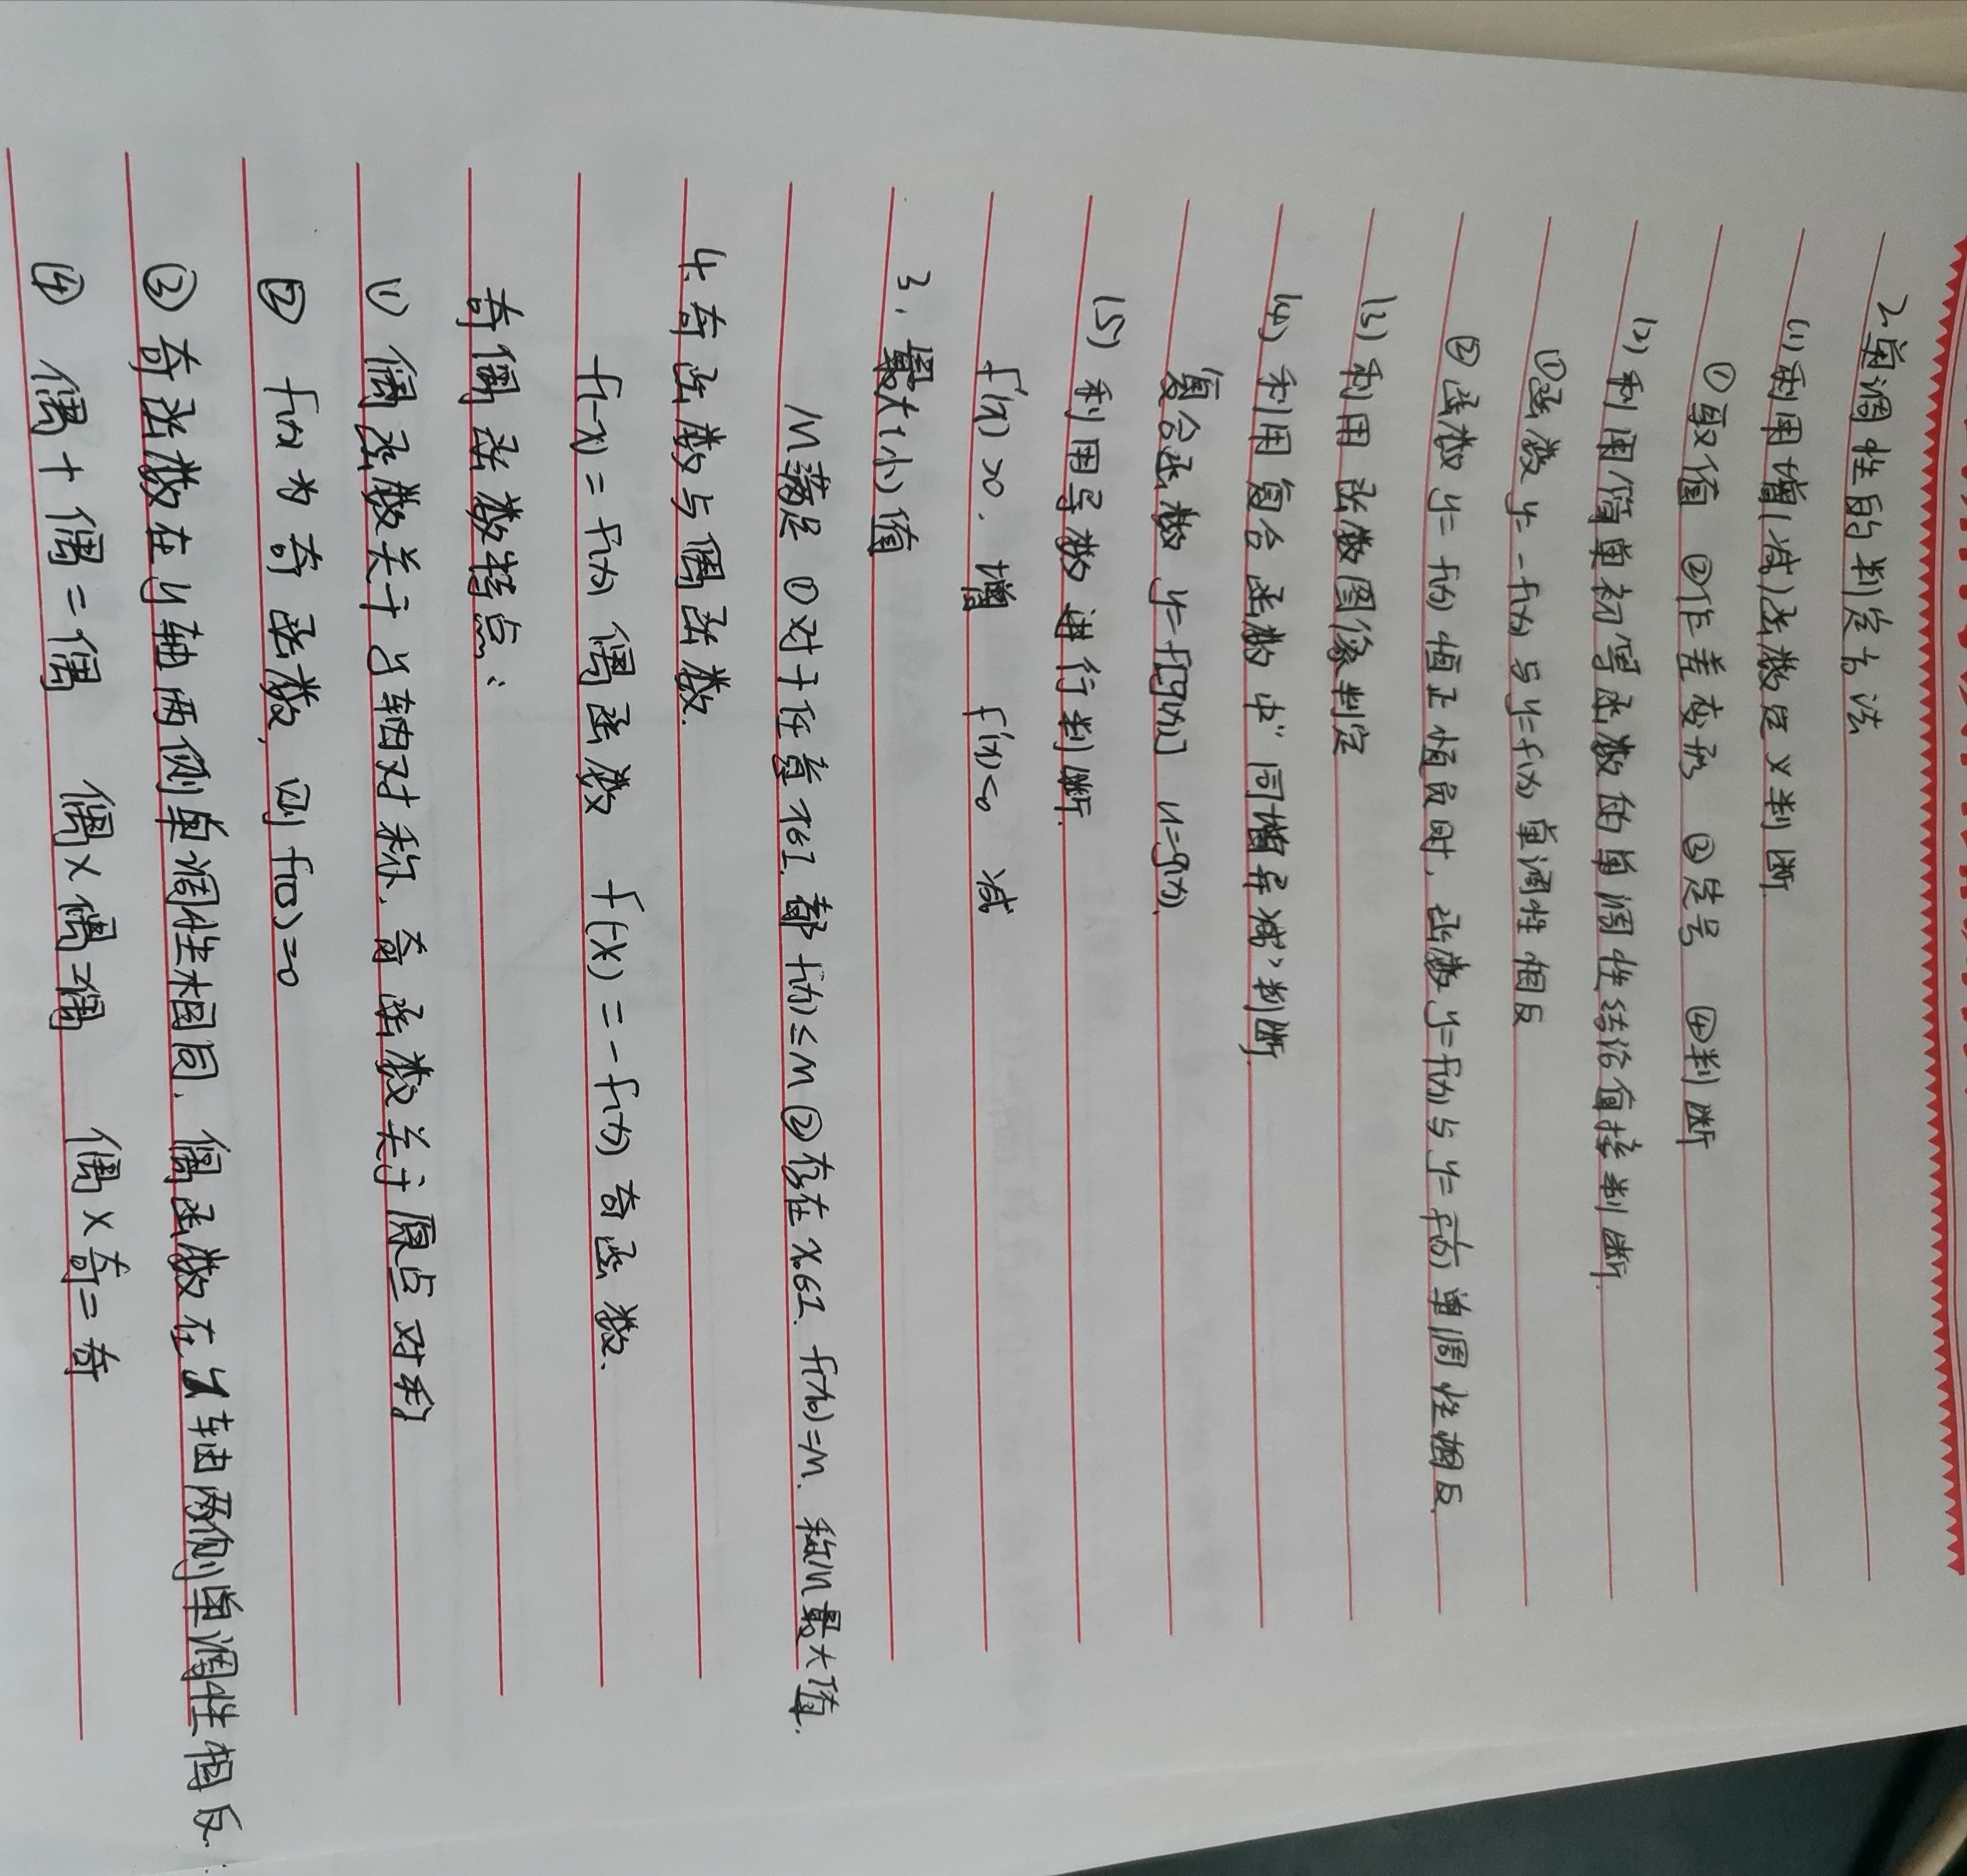 2.单调性的判定方法
(1) 利用增(减)函数定义判断.
①取值 ②作差变形 ③定号 ④判断
(2) 利用简单初等函数的单调性结论直接判断.
①函数 y=-f(x) 与 y=f(x) 单调性相反
②函数 y=f(x) 恒正恒负时, 函数 y=f(x) 与 y=1/f(x) 单调性相反.
(3) 利用函数图像判定
(4) 利用复合函数中"同增异减"判断.
复合函数 y=f[g(x)] u=g(x).
(5) 利用导数进行判断.
f'(x)>0. 增 f'(x)<0 减
3. 最大(小)值
M满足 ①对于任意 x∈I. 都 f(x)≤M ②存在 x₀∈I. f(x₀)=M. 称M最大值.
4. 奇函数与偶函数.
f(-x)=f(x) 偶函数 f(-x)=-f(x) 奇函数.
奇偶函数特点:
① 偶函数关于y轴对称. 奇函数关于原点对称
② f(x)为奇函数, 则f(0)=0
③ 奇函数在y轴两侧单调性相同. 偶函数在y轴两侧单调性相反.
④ 偶+偶=偶 偶×偶=偶 偶×奇=奇